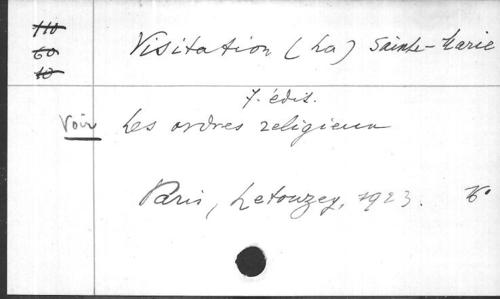 110
60
10
Visitation (La) Sainte-Marie
7. édit.
Voir Les ordres religieux
Paris, Letouzey, 1923.